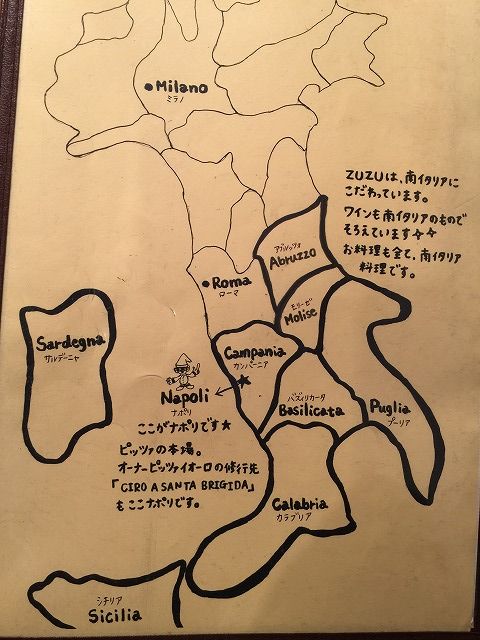 Milano
ミラノ
ZUZUは、南イタリアに
こだわっています。
ワインも南イタリアのもので
そろえています☆☆
お料理も全て、南イタリア
料理です。
アブルッツオ
Abruzzo
Roma
ローマ
モリーゼ
Molise
Sardegna
サルデーニャ
Campania
カンパーニア
Napoli
ナポリ
ここがナポリです★
バズィリカータ
Basilicata
Puglia
プーリア
ピッツァの本場。
オーナーピッツァイオーロの修行先
「CIRO A SANTA BRIGIDA」
もここナポリです。
Calabria
カラブリア
シチリア
Sicilia